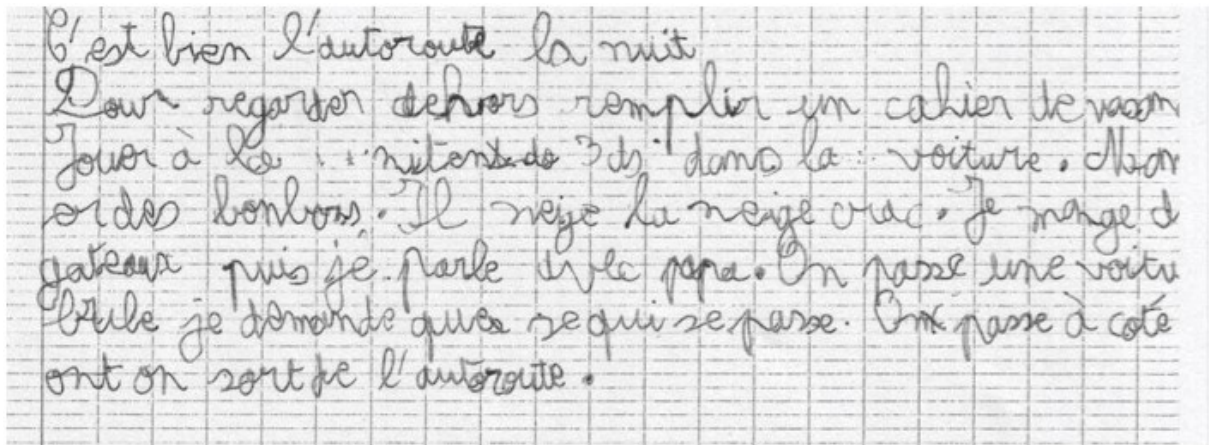 C'est bien l'autoroute la nuit
Pour regarder dehors remplir un cahier de
Jouer à la nitendo 3ds dans la voiture. Man
er des bonbons. Il neije la neige crac. Je mange d
gateaux puis je parle avec papa. On passe une voitu
brule je demande ques se qui se passe. On passe à coté
ont on sort de l'autoroute.